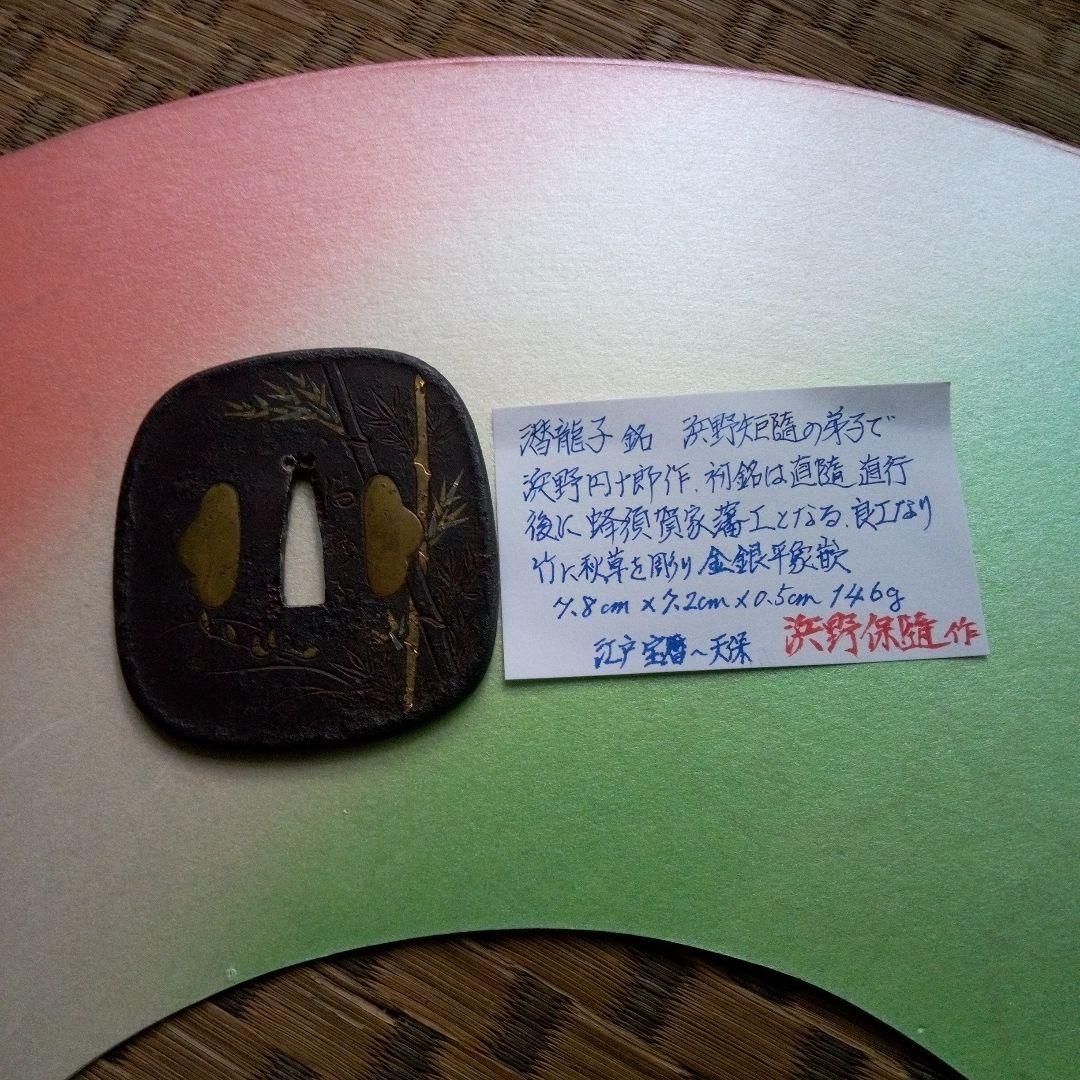 潜龍子 銘 浜野矩随の弟子で
浜野円十郎作、初銘は直随 直行
後に 蜂須賀家藩工となる、良工なり
竹に秋草を彫り 金銀平象嵌
7.8cm×7.2cm×0.5cm 146g
江戸 宝暦~天保 浜野保随作